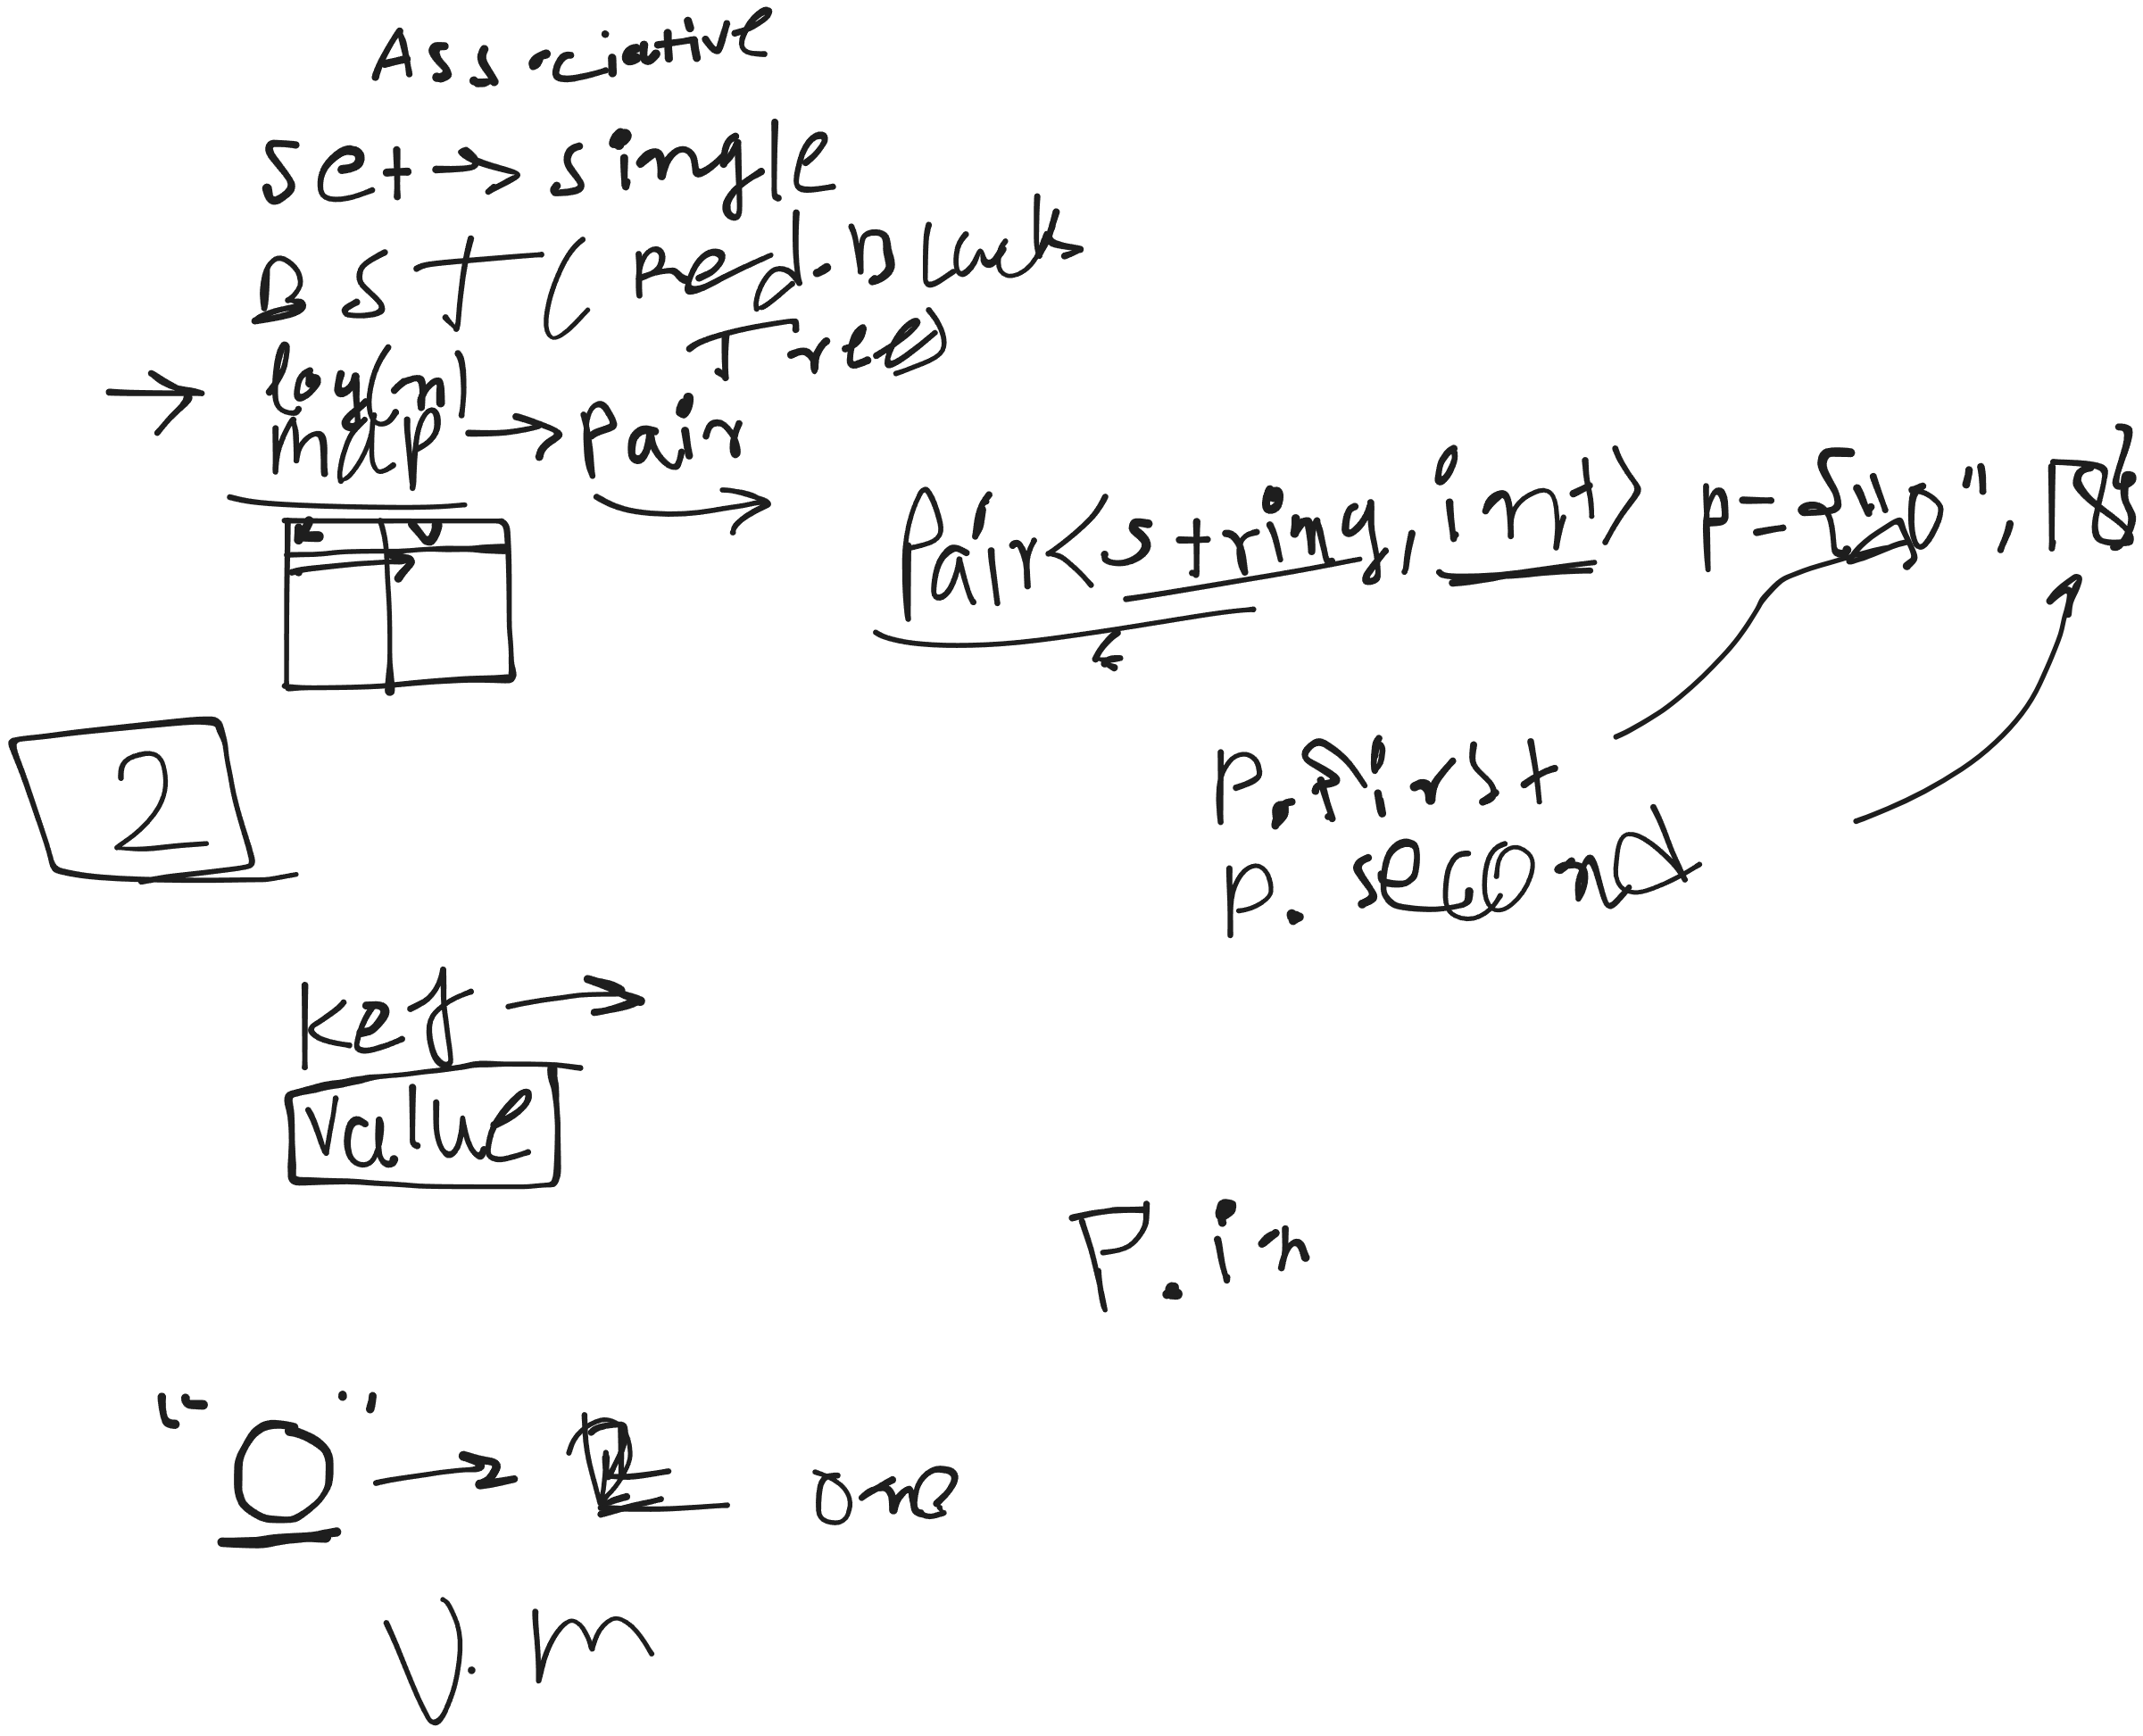 Associative
Set → single
BST (Red-Black
Trees)
→ log(n)
map → Pair
→ Pair<string, int> p =
K V
2
p.first
p. second
Key →
Value
P.in
" O " → one
V. m